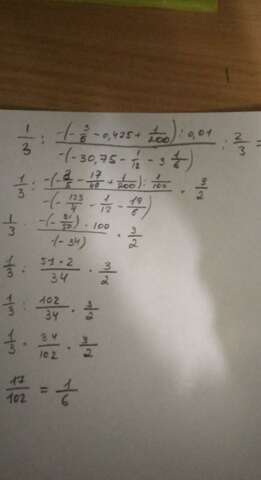 1/3 : (-(-3/5 - 0,425 + 1/200) : 0,01)/(-(-30,75 - 1/12 - 3 1/6)) : 2/3 =
1/3 : (-(-3/5 - 17/40 + 1/200) : 1/100)/(-(-123/4 - 1/12 - 19/6)) · 3/2
1/3 : (-(-51/50) · 100)/(-(-34)) · 3/2
1/3 : (51 · 2)/34 · 3/2
1/3 : 102/34 · 3/2
1/3 · 34/102 · 3/2
17/102 = 1/6